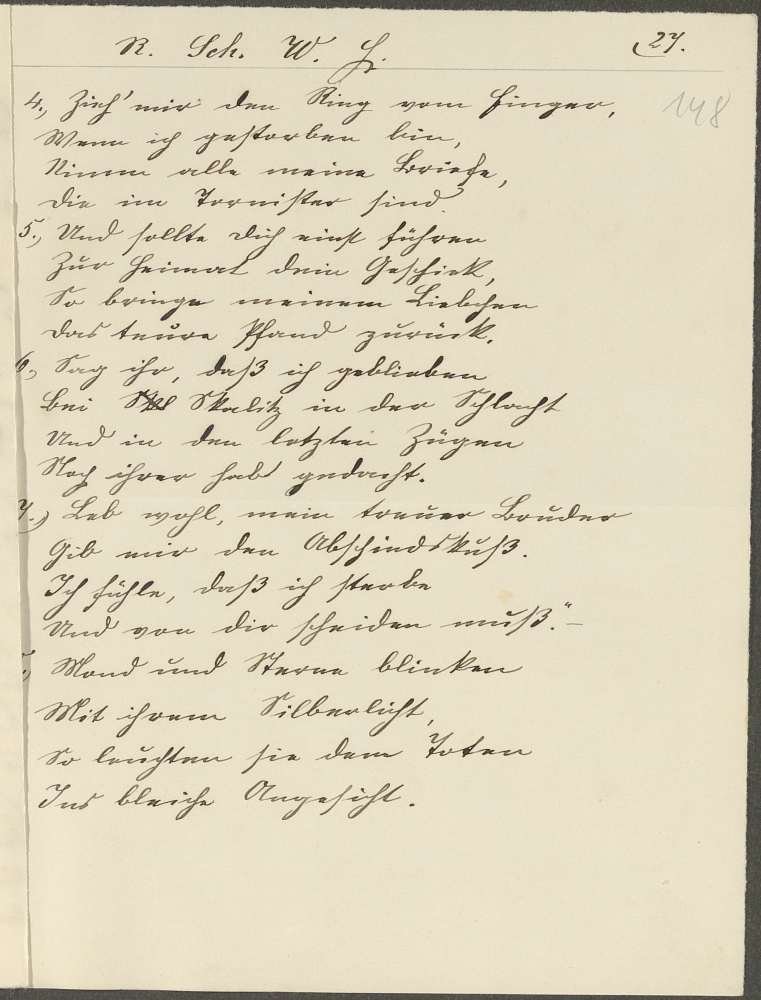 R. Sch. W. H. 27.
148
4., Zieh' mir den Ring vom Finger,
Wenn ich gestorben bin,
Nimm alle meine Briefe,
Die im Tornister sind.
5., Und sollte dich einst führen
Zur Heimat dein Geschick,
So bringe meinem Liebchen
Das teure Pfand zurück.
6., Sag ihr, daß ich geblieben
Bei Skalitz in der Schlacht
Und in den letzten Zügen
Noch ihrer hab gedacht.
7., Leb wohl, mein treuer Bruder
Gib mir den Abschiedskuß.
Ich fühle, daß ich sterbe
Und von dir scheiden muß."–
Mond und Sterne blinken
Mit ihrem Silberlicht,
So leuchten sie dem Toten
Ins bleiche Angesicht.